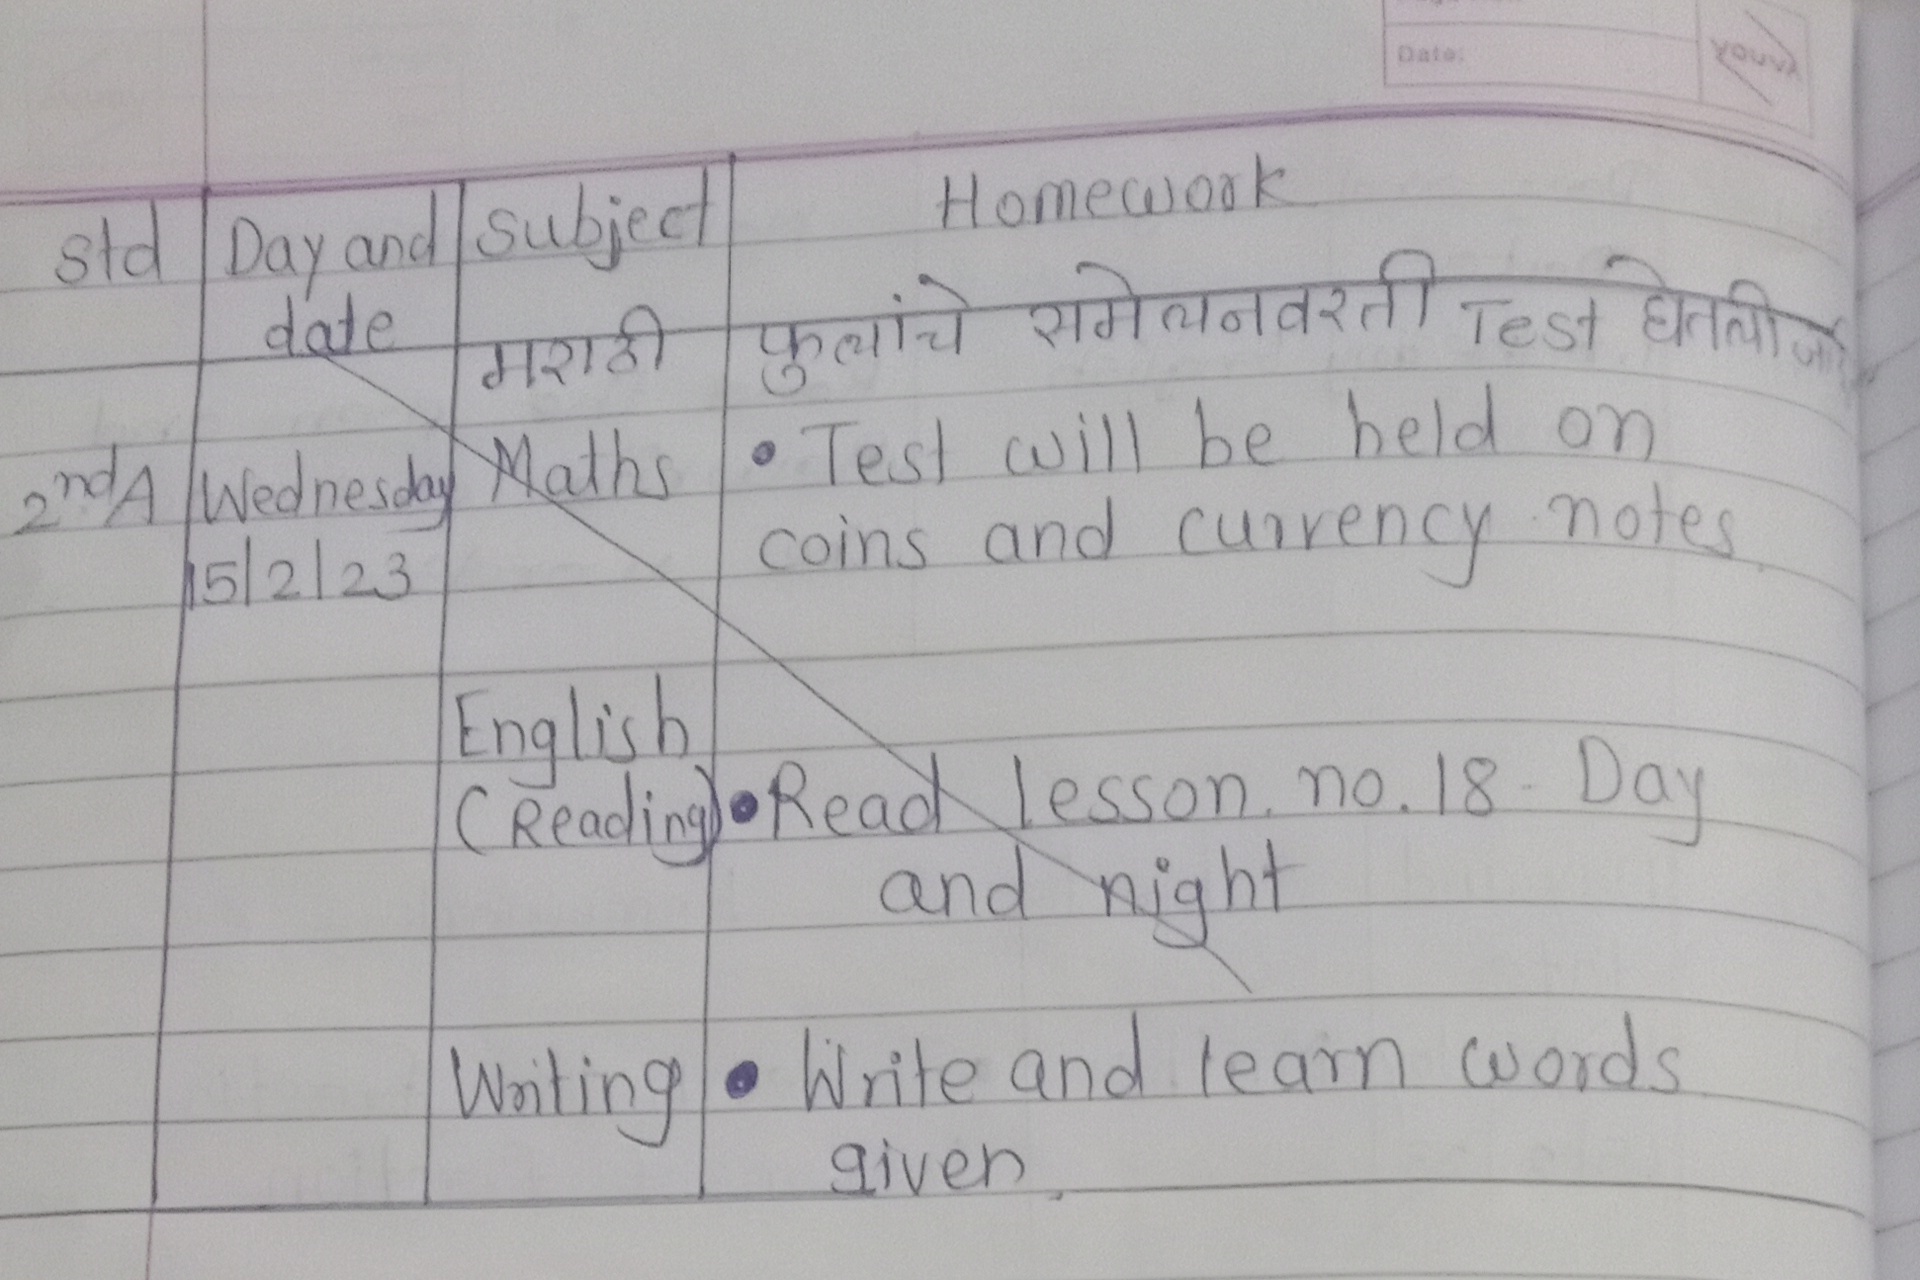 Date:
Youva
Std Day and date Subject Homework
मराठी फुलांचे समेलनवरती Test घेतली
2nd A Wednesday Maths • Test will be held on
15/2/23 coins and currency notes.
English
(Reading) • Read lesson no. 18 - Day
and night
Writing • Write and learn words
given.